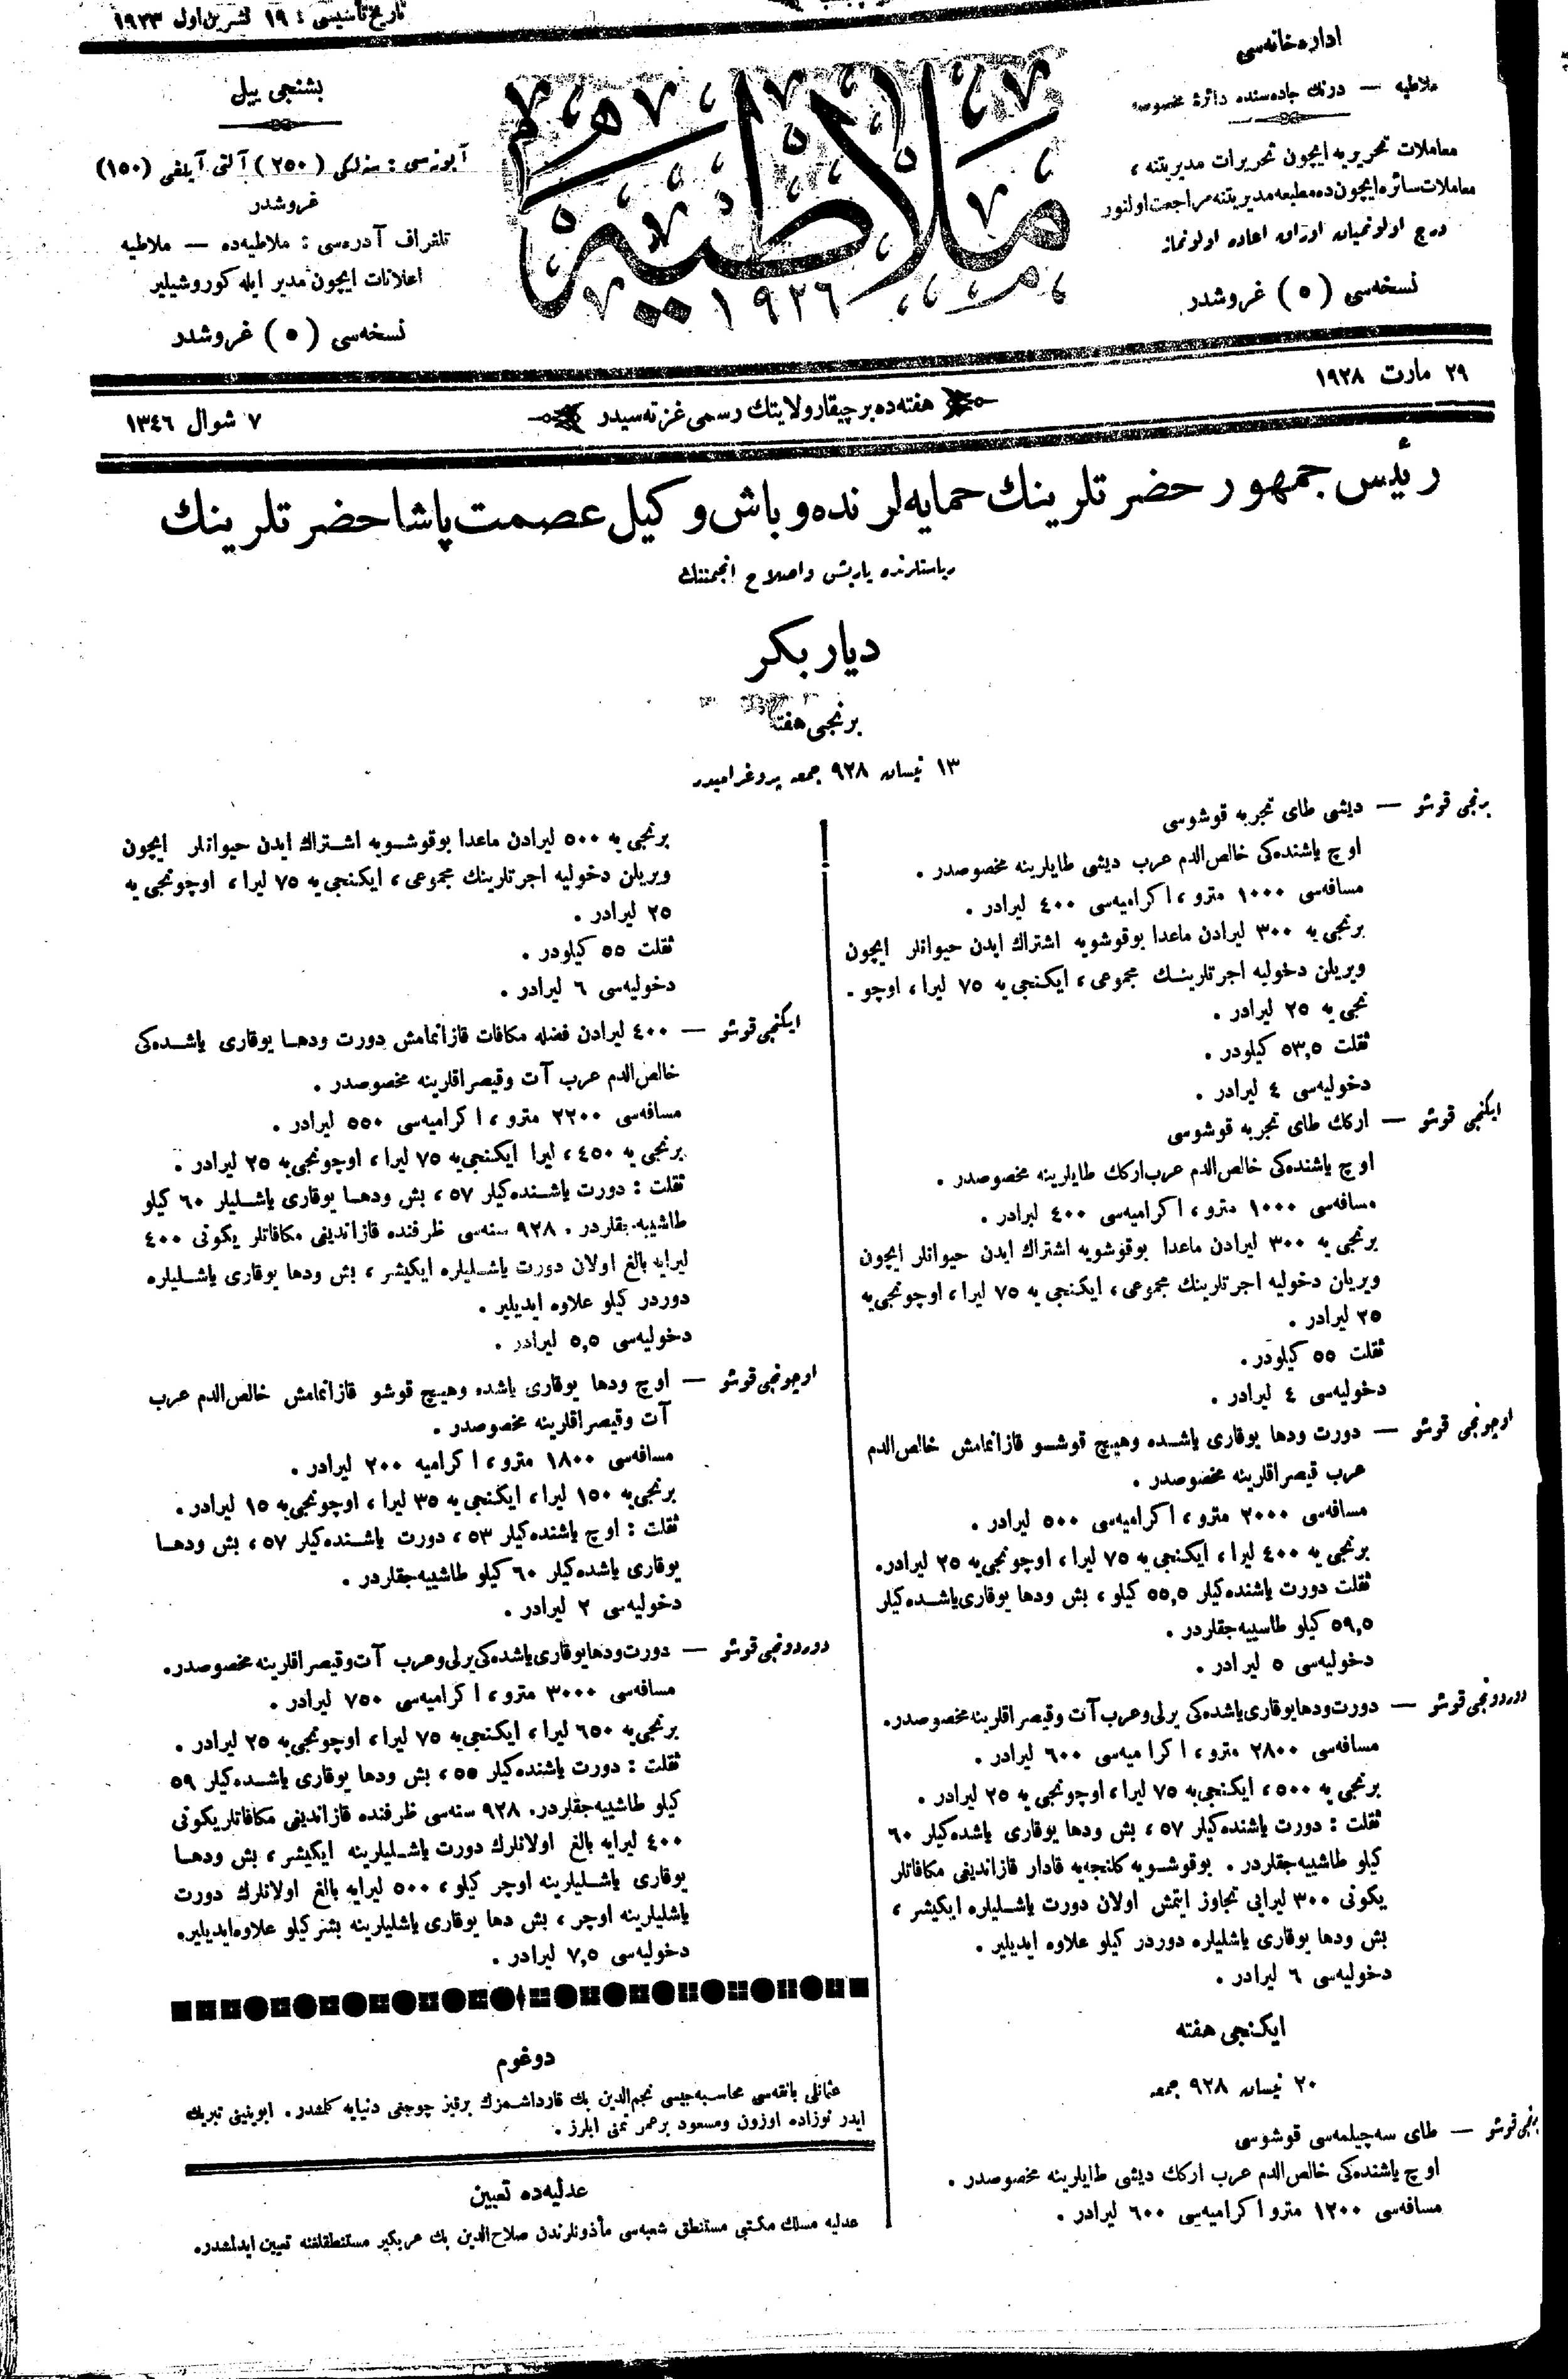 تاريخ تأسيسى : ١٩ تشرين اول ١٩٢٣
اداره‌خانه‌سى
ملاطيه — درنك جاده‌سنده دائرهٔ مخصوصه
معاملات تحريريه ايچون تحريرات مديريتنه ،
معاملات سائره ايچون‌ده مطبعه مديريتنه مراجعت اولنور
درج اولونميان اوراق اعاده اولونماز
نسخه‌سى (٥) غروشدر
ملاطيه
١٩٢٦
بشنجى ييل
آبونه‌سى : سنه‌لكى (٢٥٠) آلتى آيلغى (١٥٠)
غروشدر
تلغراف آدره‌سى : ملاطيه‌ده — ملاطيه
اعلانات ايچون مدير ايله كوروشيلير
نسخه‌سى (٥) غروشدر
٢٩ مارت ١٩٢٨
هفته‌ده بر چيقار ولايتك رسمى غزته‌سيدر
٧ شوال ١٣٤٦
رئيس جمهور حضرتلرينك حمايه‌لرنده و باش وكيل عصمت پاشا حضرتلرينك
رياستلرنده ياريش و اصلاح انجمننك
ديار بكر
برنجى هفته
١٣ نيسان ٩٢٨ جمعه پروغراميدر
برنجى قوشو — ديشى طاى تجربه قوشوسى
اوچ ياشنده‌كى خالص‌الدم عرب ديشى طايلرينه مخصوصدر .
مسافه‌سى ١٠٠٠ مترو ، اكراميه‌سى ٤٠٠ ليرادر .
برنجى يه ٣٠٠ ليرادن ماعدا بوقوشويه اشتراك ايدن حيوانلر ايچون
ويريلن دخوليه اجرتلرينك مجموعى ، ايكنجى يه ٧٥ ليرا ، اوچو -
نجى يه ٢٥ ليرادر .
ثقلت ٥٣,٥ كيلودر .
دخوليه‌سى ٤ ليرادر .
ايكنجى قوشو — اركك طاى تجربه قوشوسى
اوچ ياشنده‌كى خالص‌الدم عرب اركك طايلرينه مخصوصدر .
مسافه‌سى ١٠٠٠ مترو ، اكراميه‌سى ٤٠٠ ليرادر .
برنجى يه ٣٠٠ ليرادن ماعدا بوقوشويه اشتراك ايدن حيوانلر ايچون
ويريلن دخوليه اجرتلرينك مجموعى ، ايكنجى يه ٧٥ ليرا ، اوچونجى‌يه
٢٥ ليرادر .
ثقلت ٥٥ كيلودر .
دخوليه‌سى ٤ ليرادر .
اوچونجى قوشو — دورت ودها يوقارى ياشده وهيچ قوشو قازانمامش خالص‌الدم
عرب قيصراقلرينه مخصوصدر .
مسافه‌سى ٢٠٠٠ مترو ، اكراميه‌سى ٥٠٠ ليرادر .
برنجى يه ٤٠٠ ليرا ، ايكنجى يه ٧٥ ليرا ، اوچونجى‌يه ٢٥ ليرادر.
ثقلت دورت ياشنده‌كيلر ٥٥,٥ كيلو ، بش ودها يوقارى ياشده‌كيلر
٥٩,٥ كيلو طاشييه‌جقلردر .
دخوليه‌سى ٥ ليرادر .
دوردونجى قوشو — دورت ودها يوقارى ياشده‌كى يرلى وعرب آت وقيصراقلرينه مخصوصدر.
مسافه‌سى ٢٨٠٠ مترو ، اكراميه‌سى ٦٠٠ ليرادر .
برنجى يه ٥٠٠ ، ايكنجى‌يه ٧٥ ليرا ، اوچونجى يه ٢٥ ليرادر .
ثقلت : دورت ياشنده‌كيلر ٥٧ ، بش ودها يوقارى ياشده‌كيلر ٦٠
كيلو طاشييه‌جقلردر . بوقوشويه كلنجه‌يه قادار قازانديغى مكافاتلر
يكونى ٣٠٠ ليرايى تجاوز ايتمش اولان دورت ياشليلره ايكيشر ،
بش ودها يوقارى ياشليلره دوردر كيلو علاوه ايديلير .
دخوليه‌سى ٦ ليرادر .
ايكنجى هفته
٢٠ نيسان ٩٢٨ جمعه
برنجى قوشو — طاى سه‌چيلمه‌سى قوشوسى
اوچ ياشنده‌كى خالص‌الدم عرب اركك ديشى طايلرينه مخصوصدر .
مسافه‌سى ١٢٠٠ مترو اكراميه‌سى ٦٠٠ ليرادر .
برنجى يه ٥٠٠ ليرادن ماعدا بوقوشويه اشتراك ايدن حيوانلر ايچون
ويريلن دخوليه اجرتلرينك مجموعى ، ايكنجى يه ٧٥ ليرا ، اوچونجى يه
٢٥ ليرادر .
ثقلت ٥٥ كيلودر .
دخوليه‌سى ٦ ليرادر .
ايكنجى قوشو — ٤٠٠ ليرادن فضله مكافات قازانمامش دورت ودها يوقارى ياشده‌كى
خالص‌الدم عرب آت وقيصراقلرينه مخصوصدر .
مسافه‌سى ٢٢٠٠ مترو ، اكراميه‌سى ٥٥٠ ليرادر .
برنجى يه ٤٥٠ ، ليرا ايكنجى‌يه ٧٥ ليرا ، اوچونجى‌يه ٢٥ ليرادر .
ثقلت : دورت ياشنده‌كيلر ٥٧ ، بش ودها يوقارى ياشليلر ٦٠ كيلو
طاشييه‌جقلردر . ٩٢٨ سنه‌سى ظرفنده قازانديغى مكافاتلر يكونى ٤٠٠
ليرايه بالغ اولان دورت ياشليلره ايكيشر ، بش ودها يوقارى ياشليلره
دوردر كيلو علاوه ايديلير .
دخوليه‌سى ٥,٥ ليرادر .
اوچونجى قوشو — اوچ ودها يوقارى ياشده وهيچ قوشو قازانمامش خالص‌الدم عرب
آت وقيصراقلرينه مخصوصدر .
مسافه‌سى ١٨٠٠ مترو ، اكراميه ٢٠٠ ليرادر .
برنجى‌يه ١٥٠ ليرا ، ايكنجى‌يه ٣٥ ليرا ، اوچونجى‌يه ١٥ ليرادر .
ثقلت : اوچ ياشنده‌كيلر ٥٣ ، دورت ياشنده‌كيلر ٥٧ ، بش ودها
يوقارى ياشده‌كيلر ٦٠ كيلو طاشييه‌جقلردر .
دخوليه‌سى ٢ ليرادر .
دوردونجى قوشو — دورت ودها يوقارى ياشده‌كى يرلى وعرب آت وقيصراقلرينه مخصوصدر.
مسافه‌سى ٣٠٠٠ مترو ، اكراميه‌سى ٧٥٠ ليرادر .
برنجى‌يه ٦٥٠ ليرا ، ايكنجى‌يه ٧٥ ليرا ، اوچونجى‌يه ٢٥ ليرادر .
ثقلت : دورت ياشنده‌كيلر ٥٥ ، بش ودها يوقارى ياشده‌كيلر ٥٩
كيلو طاشييه‌جقلردر. ٩٢٨ سنه‌سى ظرفنده قازانديغى مكافاتلر يكونى
٤٠٠ ليرايه بالغ اولانلرك دورت ياشليلرينه ايكيشر ، بش ودها
يوقارى ياشليلرينه اوچر كيلو ، ٥٠٠ ليرايه بالغ اولانلرك دورت
ياشليلرينه اوچر ، بش دها يوقارى ياشليلرينه بشر كيلو علاوه ايديلير.
دخوليه‌سى ٧,٥ ليرادر .
دوغوم
عثمانلى بانقه‌سى محاسبه‌جيسى نجم‌الدين بك قارداشمزك برقيز چوجغى دنيايه كلمشدر . ابوينينى تبريك
ايدر نوزاده اوزون ومسعود برعمر تمنى ايلرز .
عدليه‌ده تعيين
عدليه مسلك مكتبى مستنطق شعبه‌سى مأذونلرندن صلاح‌الدين بك عربكير مستنطقلغنه تعيين ايدلمشدر.